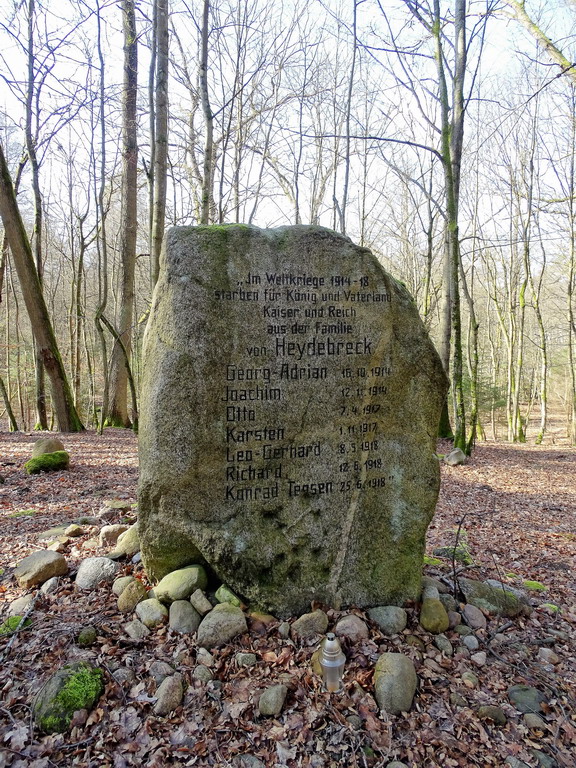 „Im Weltkriege 1914-18
starben für König und Vaterland
Kaiser und Reich
aus der Familie
von Heydebreck
Georg-Adrian 18.10.1914
Joachim 12.11.1914
Otto 7.4.1917
Karsten 1.11.1917
Leo-Gerhard 8.5.1918
Richard 12.6.1918
Konrad Tessen 25.6.1918"